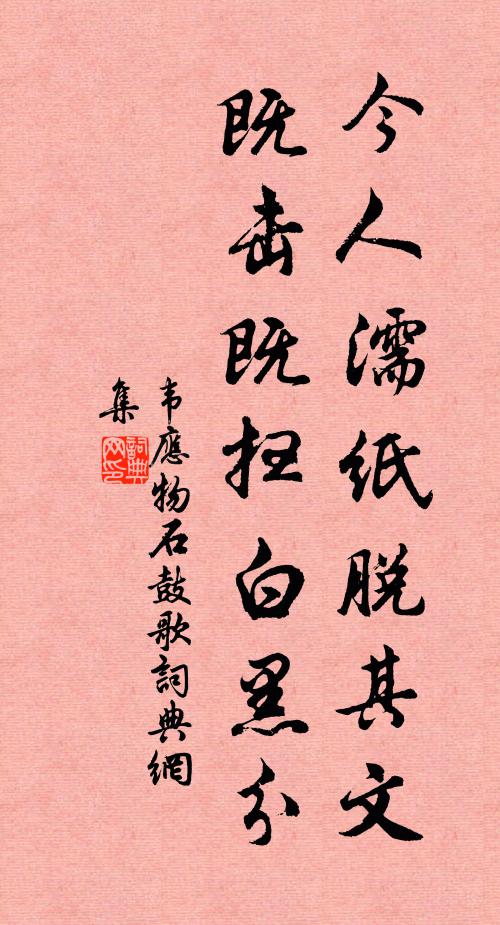 今人濡纸脱其文
既击既扫白黑分
韦應物石鼓歌詞典網
集
詞典
网印